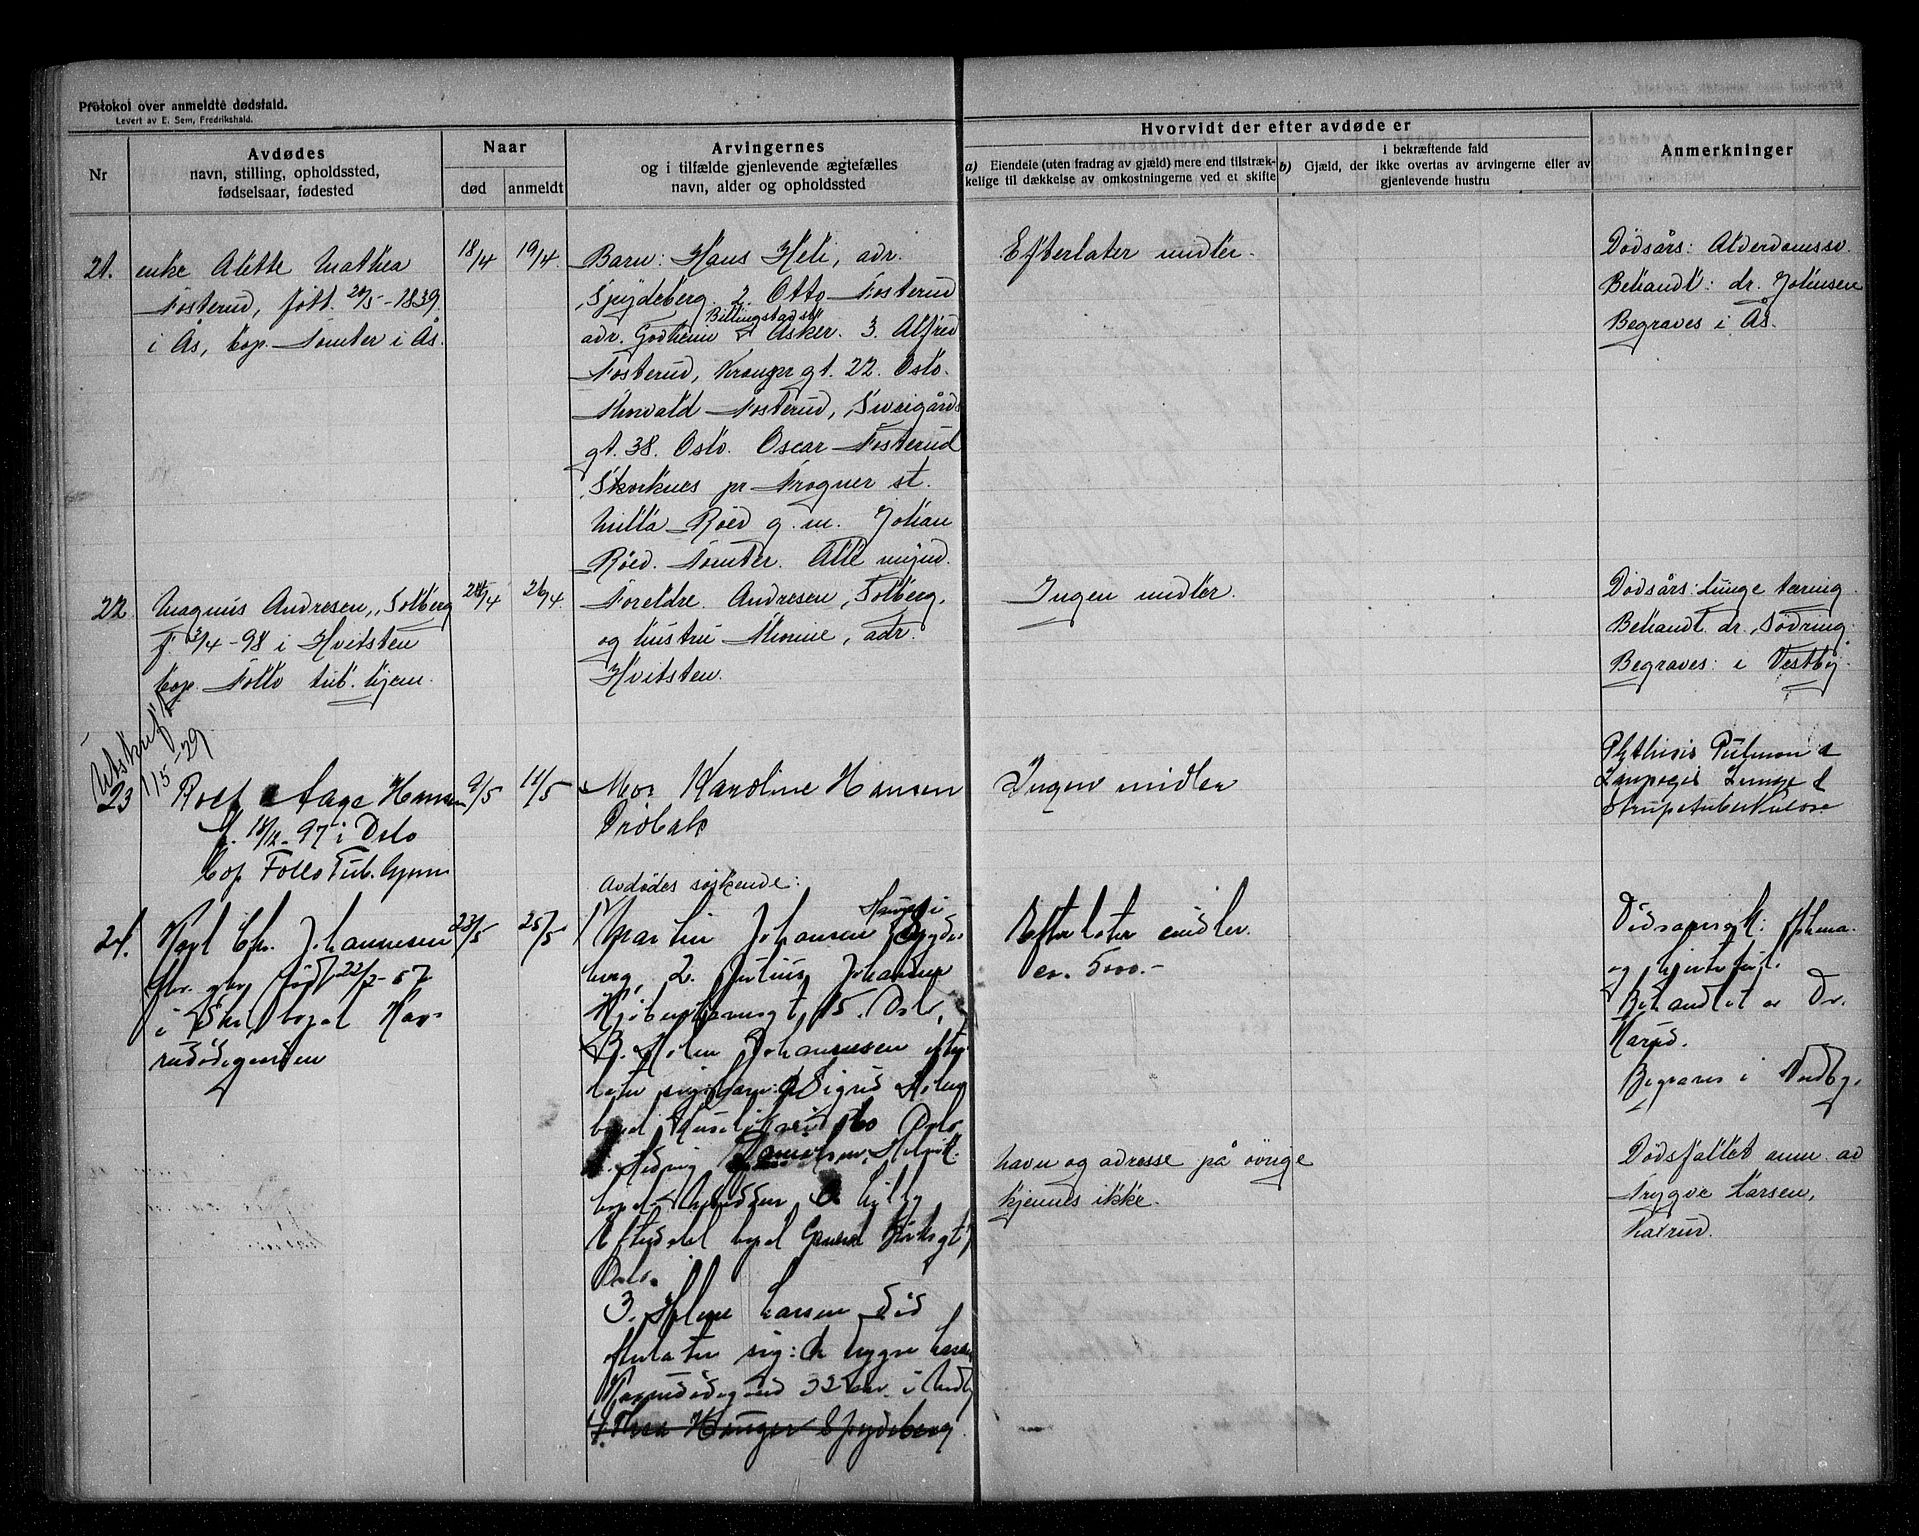 Protokol over anmeldte dødsfald.
Levert av E. Sem, Fredrikshald.
Nr
Avdødes
navn, stilling, opholdssted,
fødselsaar, fødested
Naar
død
anmeldt
Arvingernes
og i tilfælde gjenlevende ægtefælles
navn, alder og opholdssted
Hvorvidt der efter avdøde er
a) Eiendele (uten fradrag av gjæld) mere end tilstræk-
kelige til dækkelse av omkostningerne ved et skifte
i bekræftende fald
b) Gjæld, der ikke overtas av arvingerne eller av
gjenlevende hustru
Anmerkninger
21.
enke Alette Mathea
Fosterud, født 20/5-1839
i Ås, bop. Tomter i Ås.
18/4
19/4.
Barn: Hans Heli, adr.
Spydeberg. 2. Otto Fosterud
Billingstad st
adr. Godheim Asker. 3. Alfred
Fosterud, Kronpr gt. 22. Oslo.
Thorvald Fosterud, Sweigårds
gt. 38. Oslo. Oscar Fosterud
pr Frogner st.
Milla Röed g. m. Johan
Röed. Tomter. Alle mynd.
Efterlater midler.
Dödsårs: Alderdomssv.
Behandl: dr. Johnsen
Begraves i Ås.
22.
Magnus Andresen, Solberg
f. 3/4-98 i Hvitsten
bop. Follo tub. hjem.
24/4
26/4.
Foreldre. Andresen, Solberg,
og hustru Thorine, adr.
Hvitsten.
Ingen midler.
Dödsårs: Lunge tæring.
Behandl. dr. Södring.
Begraves: i Vestby.
Utskrift
1/5-29
23
Rolf Aage Hansen
f. 18/12-97 i Oslo
bop Follo Tub. hjem
9/5
11/5
Mor Karoline Hansen
Dröbak
Ingen midler
Phthisis Pulmon &
Larpogis Lunge &
Strupetuberkulose
24.
Karl Chr. Johannesen
født 22/2-57
i Ski bopel Kax-
rudødegaarden
23/5
25/5
Avdødes søskende:
1) Martin Johansen Spyde-
berg, 2. Julius Johansen
Kjøbenhavnsgt 15. Oslo,
Johannesen efter
later sig barn: Sigrid
bopel 60 Oslo
Hedvig
bopel
bopel General Birksgt
Oslo.
3. Helene Larsen död
efterlater sig: Trygve Larsen
32 aar
4. Thea Hauger Spydeberg
Efterlater midler
ca. 5000.-
Navn og adresse på övrige
kjennes ikke.
Dödsaarsak:
og hjertefeil.
Behandlet av Dr.
Harud.
Begraves i Nordby.
Dödsfallet anm. av
Trygve Larsen,